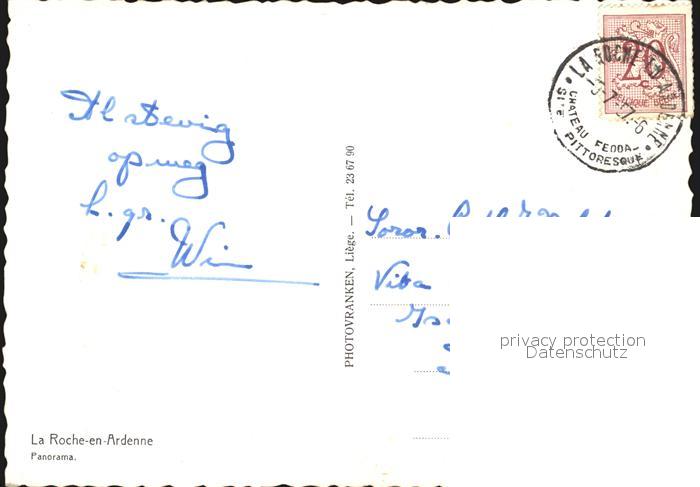 Al stevig
op weg
h. gr.
Wim
PHOTOVRANKEN, Liége. — Tél. 23 67 90
La Roche-en-Ardenne
Panorama.
20
c
BELGIQUE BE
LA ROCHE-EN-ARDENNE
SITE PITTORESQUE
CHATEAU FEODA-
Soror.
Vita
privacy protection
Datenschutz